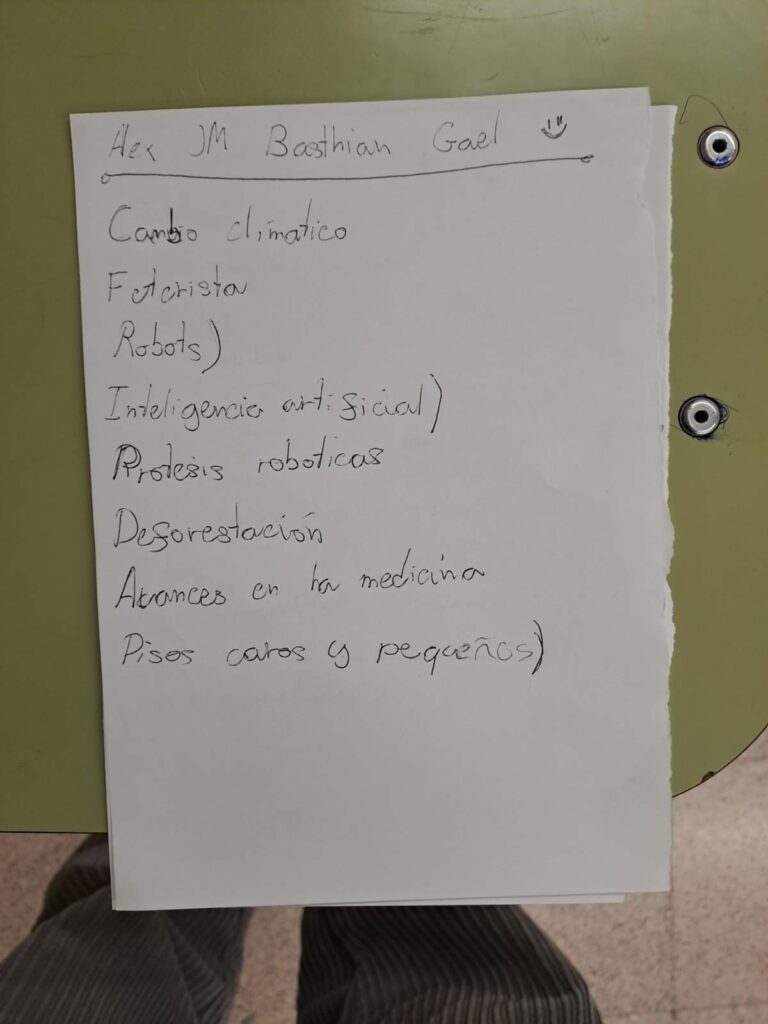 Alex JM Basthian Gael
Cambio climatico
Futurista
Robots)
Inteligencia artificial)
Protesis roboticas
Deforestación
Avances en la medicina
Pisos caros y pequeños)